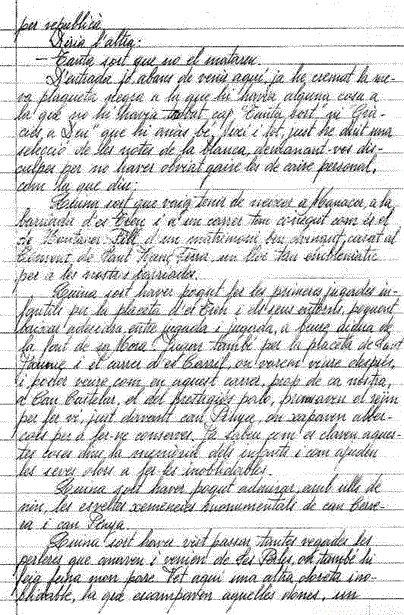 per republicà.
Diria l'altra:
— Tanta sort que no el mataren.
D'entrada, ja abans de venir aquí, ja he cremat la me-
va plagueta negra a la que hi havia alguna cosa a
la que no hi havia trobat cap "Tanta sort" ni "Grà-
cies a Déu" que hi anàs bé, i tot, just he duit una
selecció de les notes de la blanca, demanant-vos dis-
culpes per no haver obviat gaire les de caire personal,
com la que diu:
Quina sort que vaig tenir de néixer a Manacor, a la
barriada d'es Creu i a un carrer tan conegut com és el
de Muntaner, fill d'un matrimoni ben avingut, casat al
Convent de Sant Francesc, un lloc tan emblemàtic
per a les nostres barriades.
Quina sort haver pogut fer les primeres jugades in-
fantils per la placeta d'es Creu i els seus entorns, poguent
baixar adesiara entre jugada i jugada, a beure aigua de
la font de sa Mora. Jugar també per la placeta de Sant
Jaume i el carrer d'es Carril on varem viure després,
i poder veure com en aquest carrer, prop de ca nostra,
a Can Castelar, el del prestigiós porto, premsaven el raïm
per fer vi, just davant can Penya, on xapaven alber-
cocs per a fer-ne conserves. Ja sabeu com es claven aques-
tes coses dins la memòria dels infants i com ajuden
les seves olors a fer-les inoblidables.
Quina sort haver pogut admirar, amb ulls de
nin, les esveltes xemeneies monumentals de can Cerve-
ra i can Penya.
Quina sort haver vist passar tantes vegades les
perleres que anaven i venien de Ses Perles, on també hi
feia feina mon pare. Vet aquí una altra oloreta ino-
blidable, la que escampaven aquelles dones, un